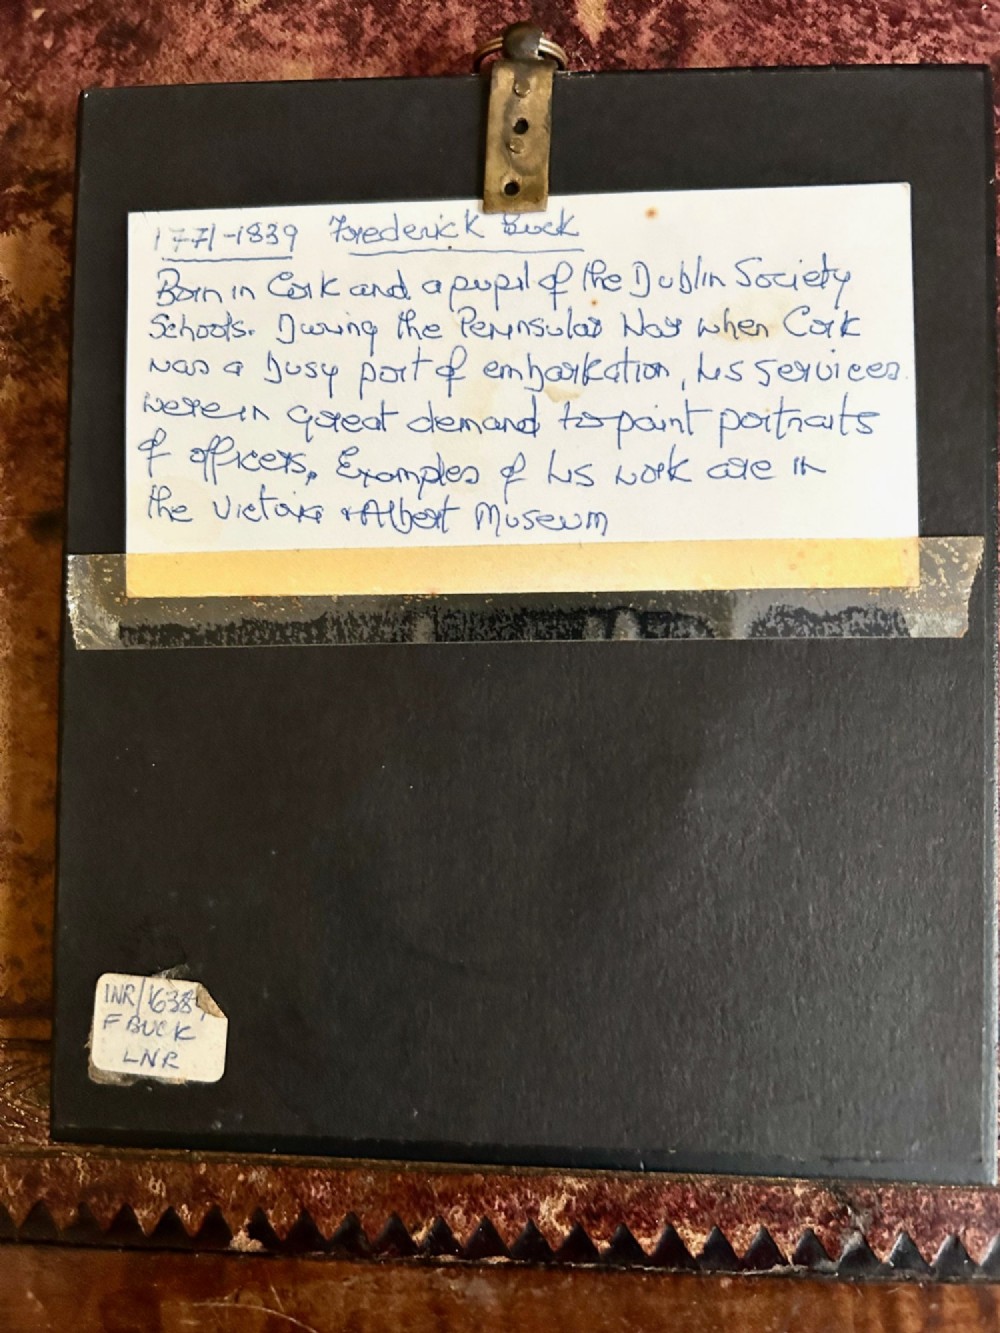 1771-1839 Frederick Buck
Born in Cork and a pupil of the Dublin Society
Schools. During the Peninsular War when Cork
was a busy port of embarkation, his services
were in great demand to paint portraits
of officers. Examples of his work are in
the Victoria & Albert Museum
INR/1638
F BUCK
LNR